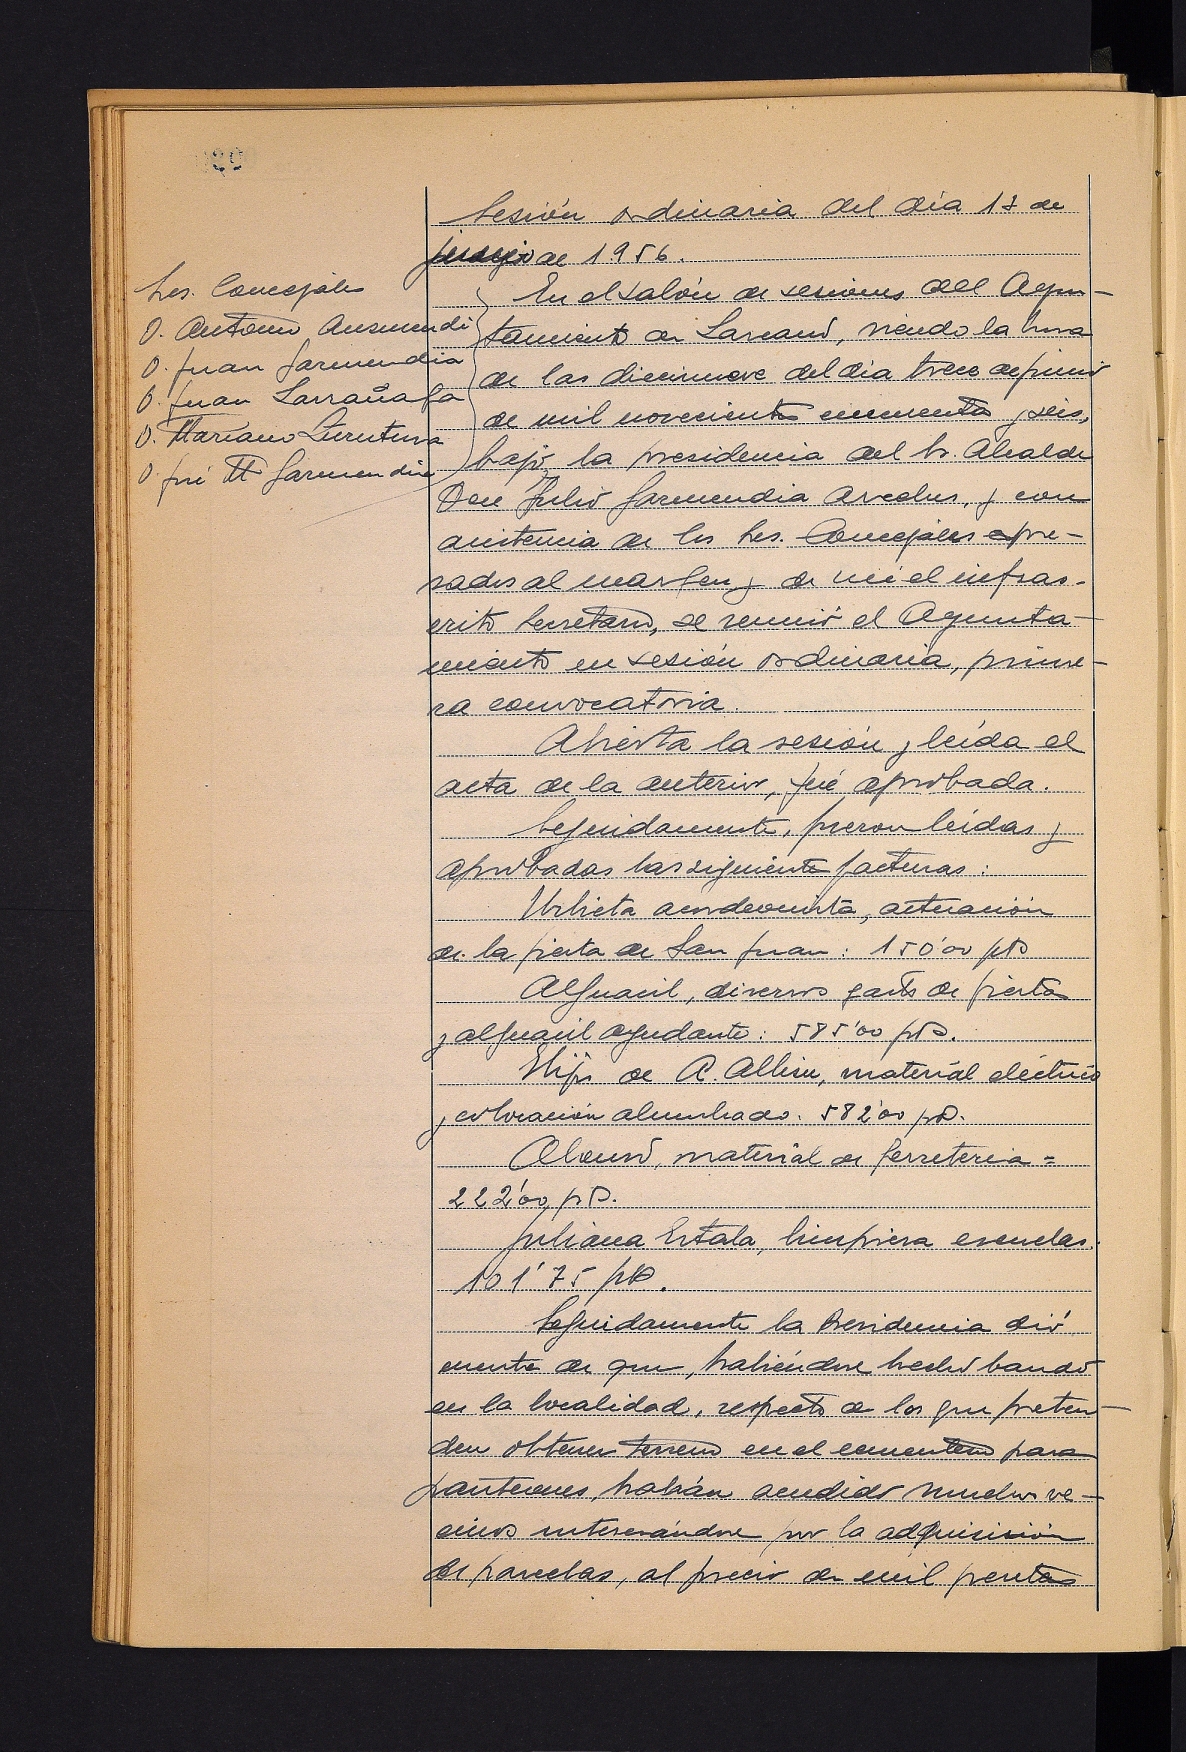 Sesión ordinaria del día 13 de
junio de 1956.
Sres. Concejales
D. Antonio Ausmendi
D. Juan Garmendia
D. Juan Larrañaga
D. Mariano Zurutuza
D. José Mª Garmendia
En el salón de sesiones del Ayun-
tamiento de Larraul, siendo la hora
de las diecinueve del día trece de junio
de mil novecientos cincuenta y seis,
bajo la presidencia del Sr. Alcalde
Don Julio Garmendia Arvelus, y con
asistencia de los Sres. Concejales expre-
sados al margen y de mi el infras-
crito Secretario, se reunió el Ayunta-
miento en sesión ordinaria, prime-
ra convocatoria.
Abierta la sesión y leída el
acta de la anterior, fué aprobada.
Seguidamente, fueron leídas y
aprobadas las siguiente facturas:
Urbieta acordeonista, actuación
de la fiesta de San Juan: 150'00 pts
Alguacil, diversos gasts de fiestas
y alguacil ayudante: 585'00 pts.
Hijo de A. Albisu, material eléctrico
y colocación alumbrado. 582'00 pts.
material de ferreteria =
222'00, pts.
Juliana Estala, limpieza escuelas.
101'75 pts.
Seguidamente la Presidencia dió
cuenta de que, habiéndose hecho bando
en la localidad, respecto a los que preten-
den obtener terreno en el cementerio para
panteones, habían acudido muchos ve-
cinos interesándose por la adquisición
de parcelas, al precio de mil pesetas